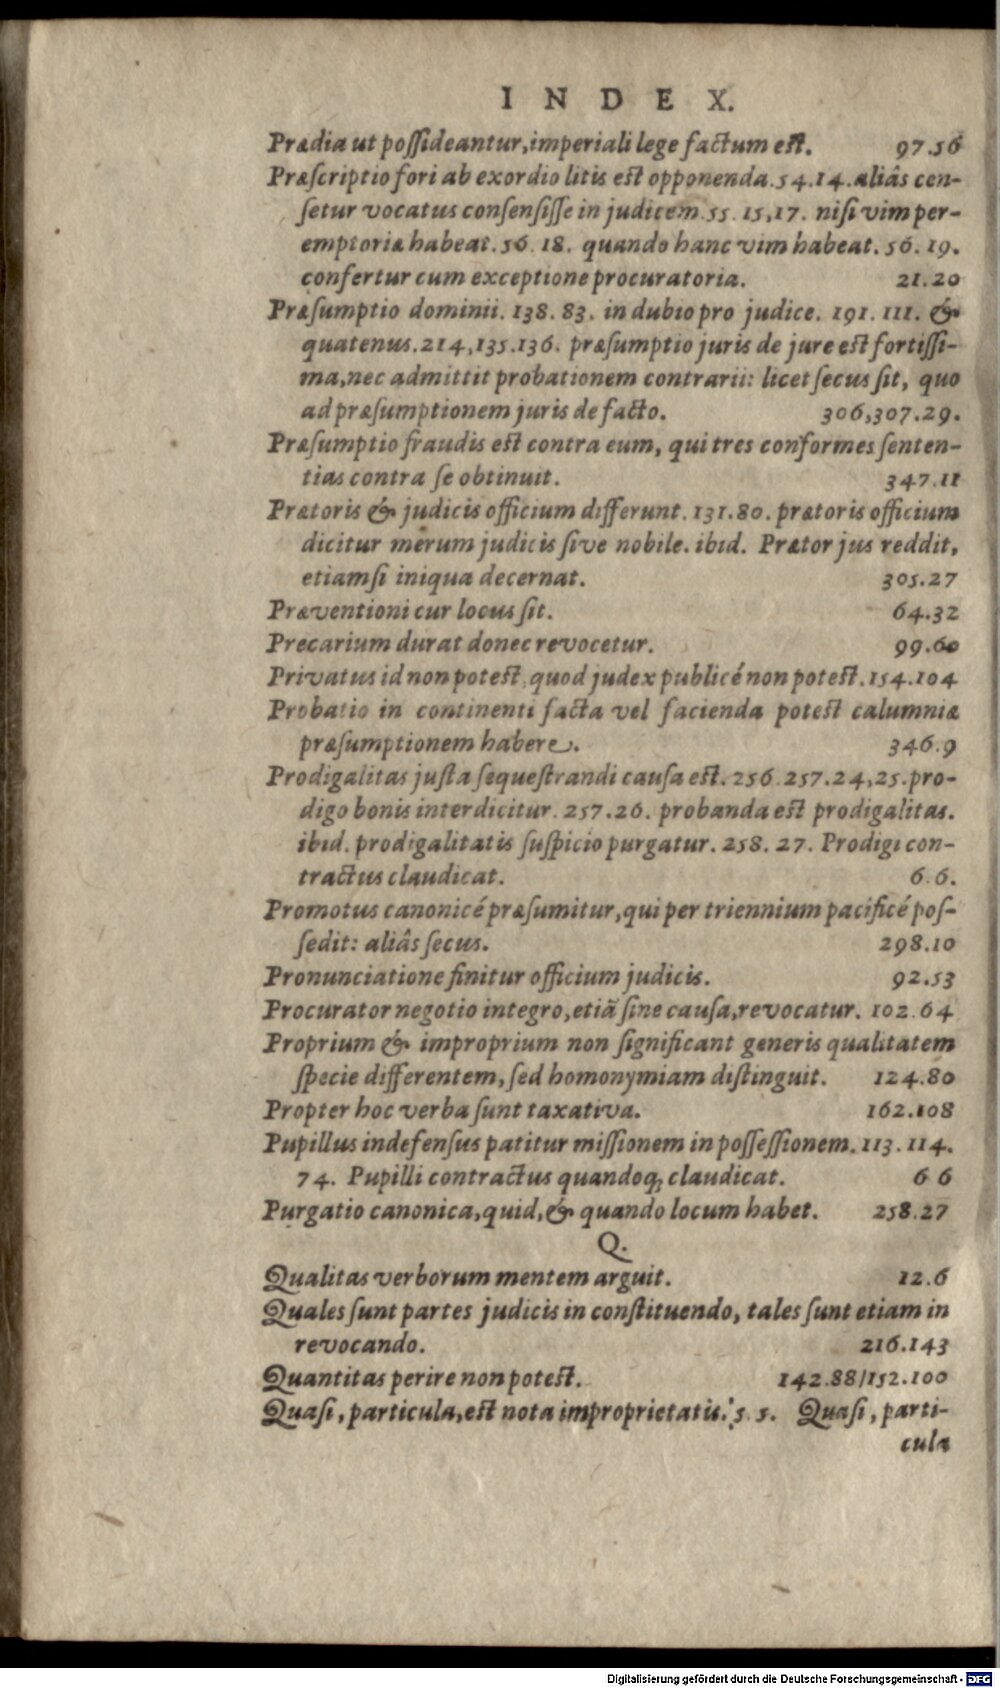 INDEX.
Prædia ut possideantur, imperiali lege factum est. 97.56
Præscriptio fori ab exordio litis est opponenda. 54.14. aliâs cen-
setur vocatus consensisse in judicem. 55. 15,17. nisi vim per-
emptoriæ habeat. 56. 18. quando hanc vim habeat. 56. 19.
confertur cum exceptione procuratoria. 21.20
Præsumptio dominii. 138. 83. in dubio pro judice. 191. 111. &
quatenus. 214, 135.136. præsumptio juris de jure est fortissi-
ma, nec admittit probationem contrarii: licet secus sit, quo
ad præsumptionem juris de facto. 306,307.29.
Præsumptio fraudis est contra eum, qui tres conformes senten-
tias contra se obtinuit. 347.11
Prætoris & judicis officium differunt. 131.80. prætoris officium
dicitur merum judicis sive nobile. ibid. Prætor jus reddit,
etiamsi iniqua decernat. 305.27
Præventioni cur locus sit. 64.32
Precarium durat donec revocetur. 99.60
Privatus id non potest, quod judex publicé non potest. 154.104
Probatio in continenti facta vel facienda potest calumniæ
præsumptionem habere. 346.9
Prodigalitas justa sequestrandi causa est. 256.257.24,25. pro-
digo bonis interdicitur. 257.26. probanda est prodigalitas.
ibid. prodigalitatis suspicio purgatur. 258. 27. Prodigi con-
tractus claudicat. 6.6.
Promotus canonicé præsumitur, qui per triennium pacificé pos-
sedit: aliâs secus. 298.10
Pronunciatione finitur officium judicis. 92.53
Procurator negotio integro, etiã sine causa, revocatur. 102.64
Proprium & improprium non significant generis qualitatem
specie differentem, sed homonymiam distinguit. 124.80
Propter hoc verba sunt taxativa. 162.108
Pupillus indefensus patitur missionem in possessionem. 113. 114.
74. Pupilli contractus quandoq; claudicat. 6 6
Purgatio canonica, quid, & quando locum habet. 258.27
Q.
Qualitas verborum mentem arguit. 12.6
Quales sunt partes judicis in constituendo, tales sunt etiam in
revocando. 216.143
Quantitas perire non potest. 142.88/152.100
Quasi, particula, est nota improprietatis. 5. 5. Quasi, parti-
cula
Digitalisierung gefördert durch die Deutsche Forschungsgemeinschaft - DFG